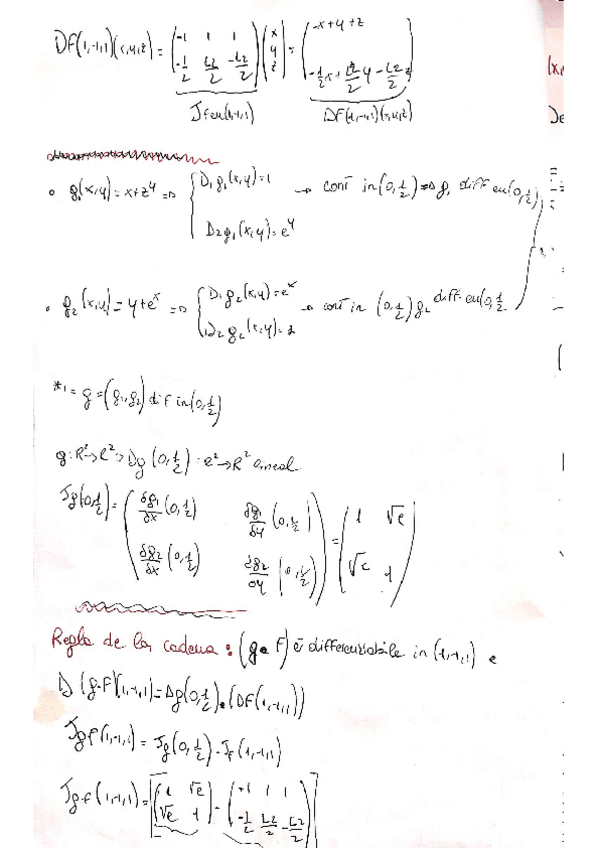 DF(1,-1,1)(x,y,z) = (-1 1 1 / -1/2 L2/2 -L2/2) (x / y / z) = (-x+y+z / -1/2x+L2/2y-L2/2z)
Jf en(1,-1,1) DF(1,-1,1)(x,y,z)
• g₁(x,y)=x+z^y => { D₁g₁(x,y)=1 → cont in(0,1/2) => g₁ diff en(0,1/2)
D₂g₁(x,y)=e^y
• g₂(x,y)=y+e^x => { D₁g₂(x,y)=e^x → cont in (0,1/2) g₂ diff en(0,1/2
D₂g₂(x,y)=1
*₁ = g=(g₁,g₂) dif in(0,1/2)
g:R²→R²=>Dg(0,1/2):R²→R² lineal
Jg(0,1/2)= (δg₁/δx (0,1/2) δg₁/δy (0,1/2) / δg₂/δx (0,1/2) δg₂/δy (0,1/2)) = (1 √e / √e 1)
Regla de la cadena: (g∘F) è differenziabile in (1,-1,1) e
D(g∘F)(1,-1,1)=Dg(0,1/2)∘(DF(1,-1,1))
Jg∘f(1,-1,1)=Jg(0,1/2)·Jf(1,-1,1)
Jg∘f(1,-1,1)=[(1 √e / √e 1)·(-1 1 1 / -1/2 L2/2 -L2/2)]